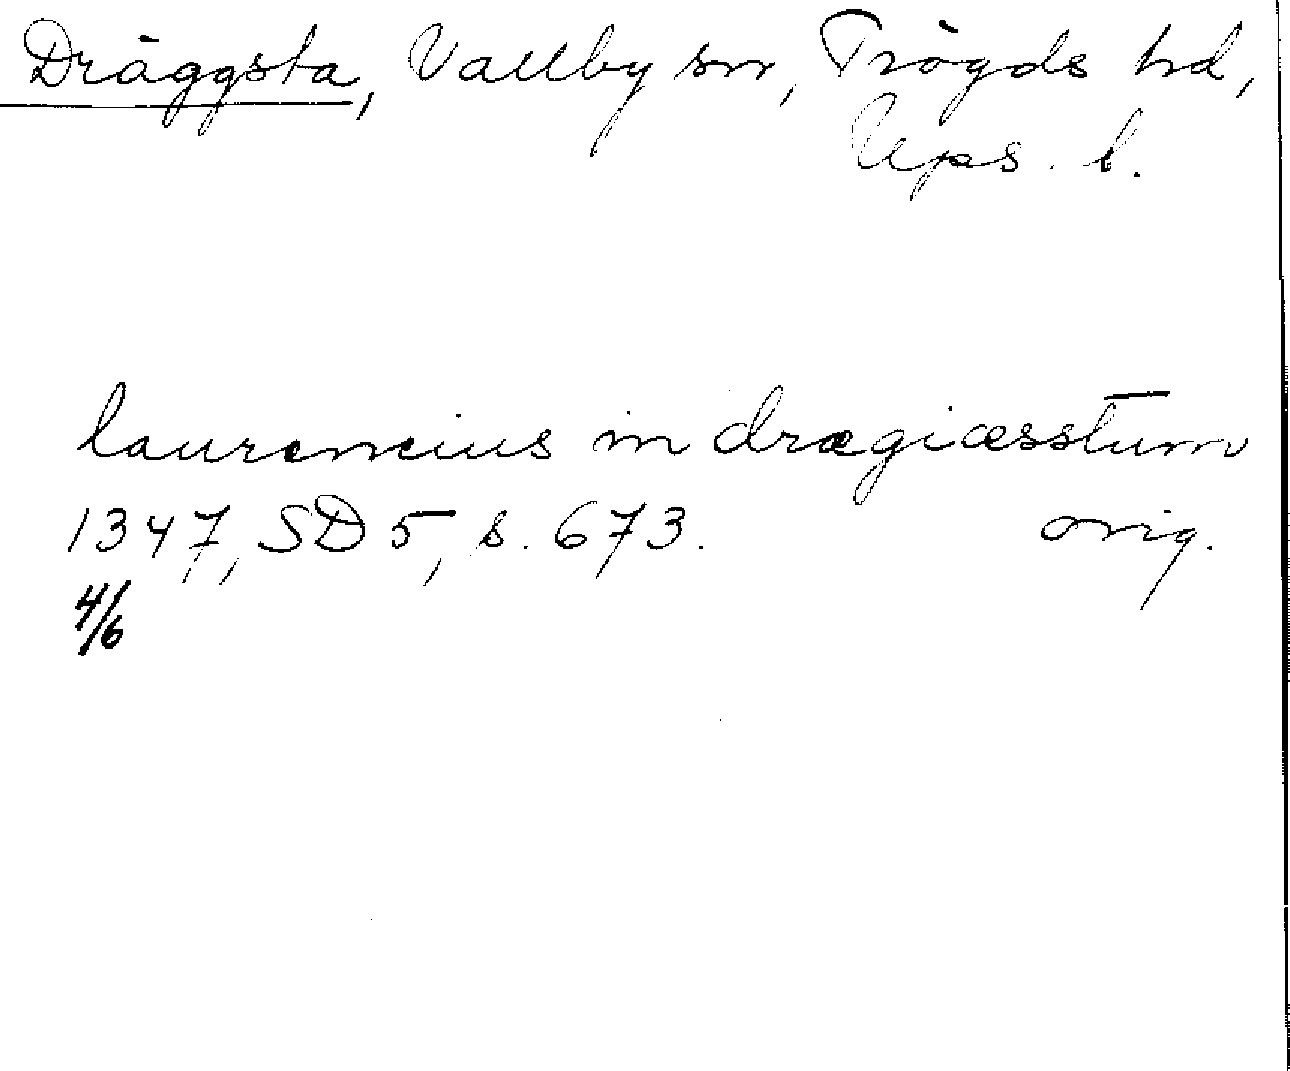 Dräggsta, Vallby sn, Trögds hd,
Ups. l.
laurencius in drægiæsstum
1347, SD 5, s. 673. orig.
4/6